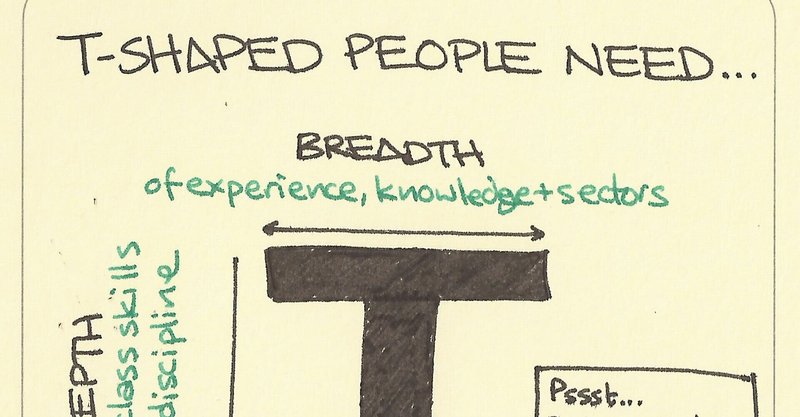 T-SHAPED PEOPLE NEED...
BREADTH
of experience, knowledge + sectors
EPTH
class skills
discipline
Pssst...